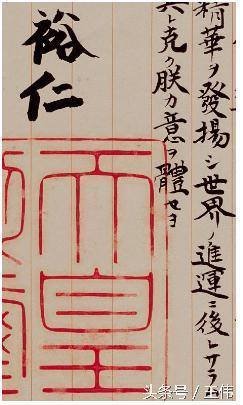 精華ヲ發揚シ世界ノ進運ニ後レサラ
其レ克ク朕カ意ヲ體セヨ
裕仁
天皇
头条号 / 王伟